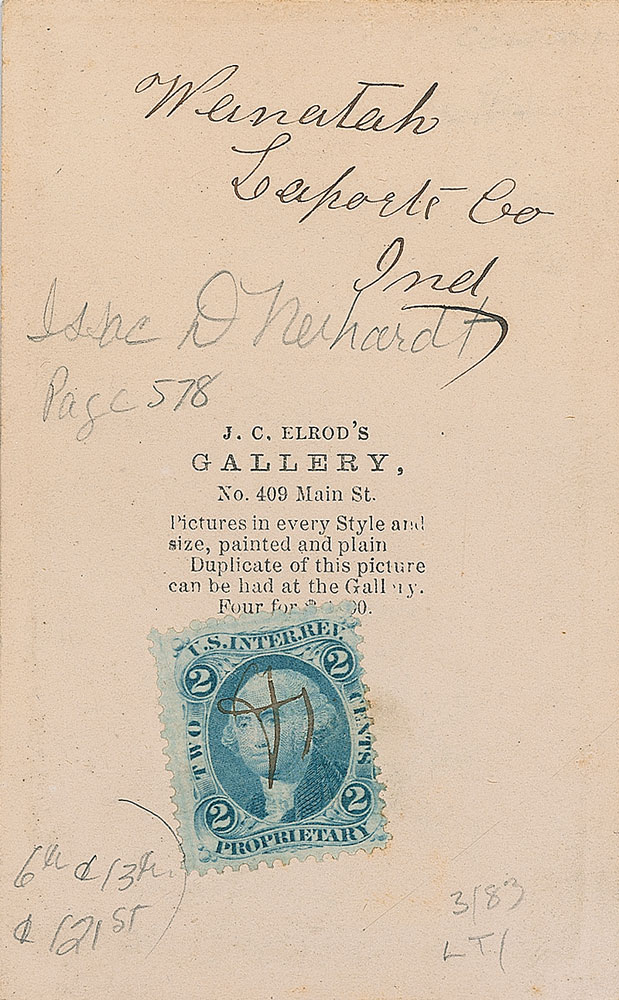 Wanatah
Laporte Co
Ind
Isaac D Nerhardt
Page 578
J. C. ELROD'S
GALLERY,
No. 409 Main St.
Pictures in every Style and
size, painted and plain
Duplicate of this picture
can be had at the Gallery.
Four for $ 00.
U.S. INTER. REV.
2 2
TWO CENTS
2 2
PROPRIETARY
6th & 13th
& 121st
3/83